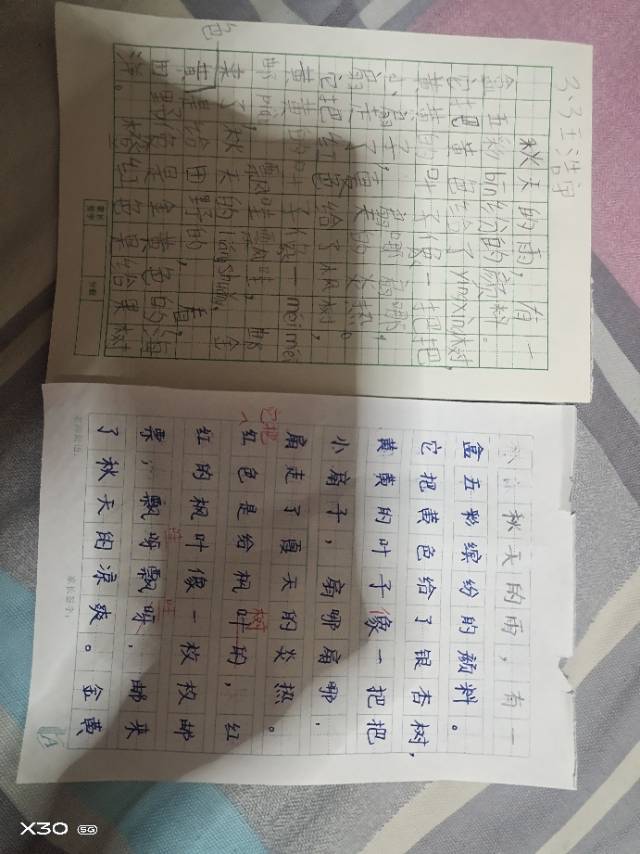 秋天的雨，有一
盒五彩bin纷的颜料。
它把黄色给了yinxing树
黄黄的叶子像一把把
小扇子，扇哪扇哪，
扇走了夏天的炎热。
它把红色给了枫树，
黄黄的叶子像一meimei
邮票，飘哇飘哇，邮
来了秋天的liangshuang，金
黄色是给田野的，看，
田野像是金黄色的海
洋。橙红色是给果树
秋天的雨，有一
盒五彩缤纷的颜料。
它把黄色给了银杏树，
黄黄的叶子像一把把
小扇子，扇哪扇哪，
扇走了夏天的炎热。
它把
红色是给枫叶的，红
树
红的枫叶像一枚枚邮
票，飘呀飘呀，邮来
哇 哇
了秋天的凉爽。金黄
X30 5G